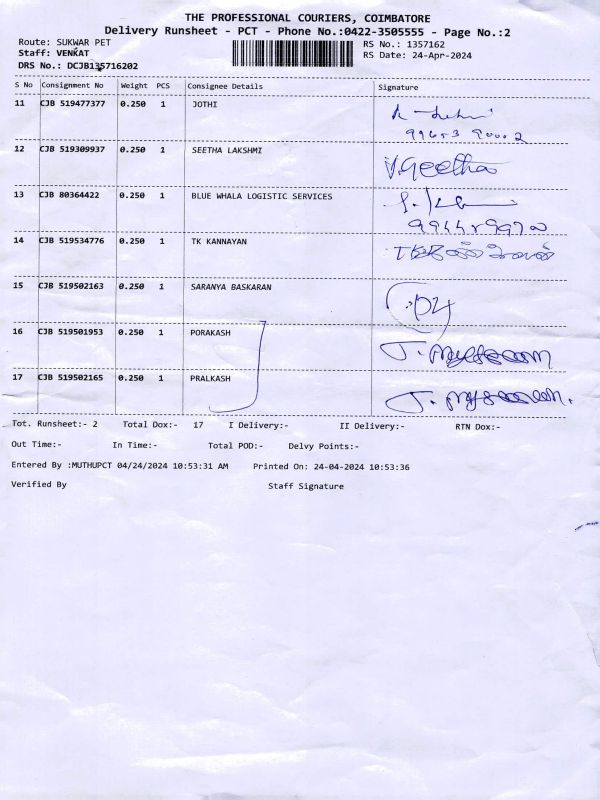 THE PROFESSIONAL COURIERS, COIMBATORE
Delivery Runsheet - PCT - Phone No.:0422-3505555 - Page No.:2
Route: SUKWAR PET
RS No.: 1357162
Staff: VENKAT
RS Date: 24-Apr-2024
DRS No.: DCJB135716202
S No Consignment No Weight PCS Consignee Details Signature
11 CJB 519477377 0.250 1 JOTHI
12 CJB 519309937 0.250 1 SEETHA LAKSHMI V.Geetha
13 CJB 80364422 0.250 1 BLUE WHALA LOGISTIC SERVICES
14 CJB 519534776 0.250 1 TK KANNAYAN
15 CJB 519502163 0.250 1 SARANYA BASKARAN
16 CJB 519501953 0.250 1 PORAKASH
17 CJB 519502165 0.250 1 PRALKASH
Tot. Runsheet:- 2 Total Dox:- 17 I Delivery:- II Delivery:- RTN Dox:-
Out Time:- In Time:- Total POD:- Delvy Points:-
Entered By :MUTHUPCT 04/24/2024 10:53:31 AM Printed On: 24-04-2024 10:53:36
Verified By Staff Signature